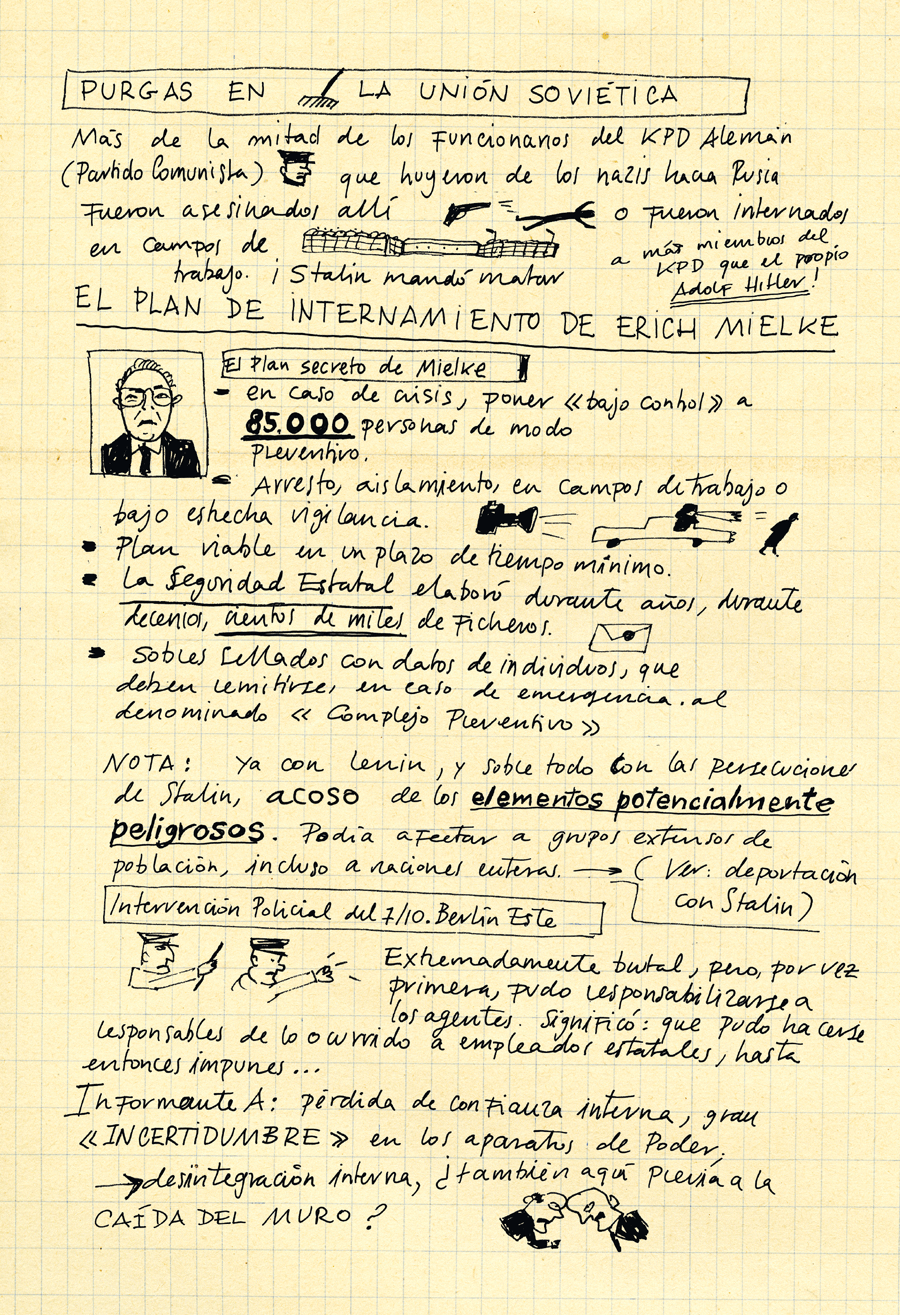 PURGAS EN LA UNIÓN SOVIÉTICA
Más de la mitad de los Funcionarios del KPD Alemán
(Partido Comunista) que huyeron de los nazis hacia Rusia
Fueron asesinados allí o Fueron internados
en campos de
trabajo. ¡Stalin mandó matar
a más miembros del
KPD que el propio
Adolf Hitler!
EL PLAN DE INTERNAMIENTO DE ERICH MIELKE
El Plan secreto de Mielke
- en caso de crisis, poner «bajo control» a
85.000 personas de modo
preventivo.
- Arresto, aislamiento, en campos de trabajo o
bajo estrecha vigilancia.
- Plan viable en un plazo de tiempo mínimo.
- La Seguridad Estatal elaboró durante años, durante
decenios, cientos de miles de Ficheros.
- Sobres sellados con datos de individuos, que
deben remitirse, en caso de emergencia. al
denominado « Complejo Preventivo »
NOTA: Ya con Lenin, y sobre todo con las persecuciones
de Stalin, acoso de los elementos potencialmente
peligrosos. Podía aFectar a grupos extensos de
población, incluso a naciones enteras. → ( Ver: deportación
con Stalin )
Intervención Policial del 7/10. Berlín Este
Extremadamente brutal, pero, por vez
primera, pudo responsabilizarse a
los agentes. Significó: que pudo hacerse
responsables de lo ocurrido a empleados estatales, hasta
entonces impunes...
InFormante A: pérdida de conFianza interna, gran
«INCERTIDUMBRE» en los aparatos de Poder.
→ desintegración interna, ¿también aquí previa a la
CAÍDA DEL MURO?